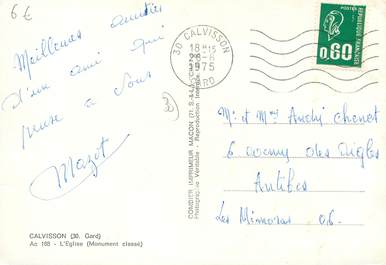 6€
Meilleures amitiés
d'un ami qui
pense à vous
Mazot
CALVISSON (30. Gard)
Ac 168 - L'Eglise (Monument classé)
COMBIER IMPRIMEUR MACON (71. S.-&-L.)
Photographie Véritable - Reproduction
30 CALVISSON
18 H 15
1975
POSTES
0,60
RÉPUBLIQUE FRANÇAISE
Mr et Mme André Chenet
6 avenue des Aigles
Antibes
Les Mimosas 06.